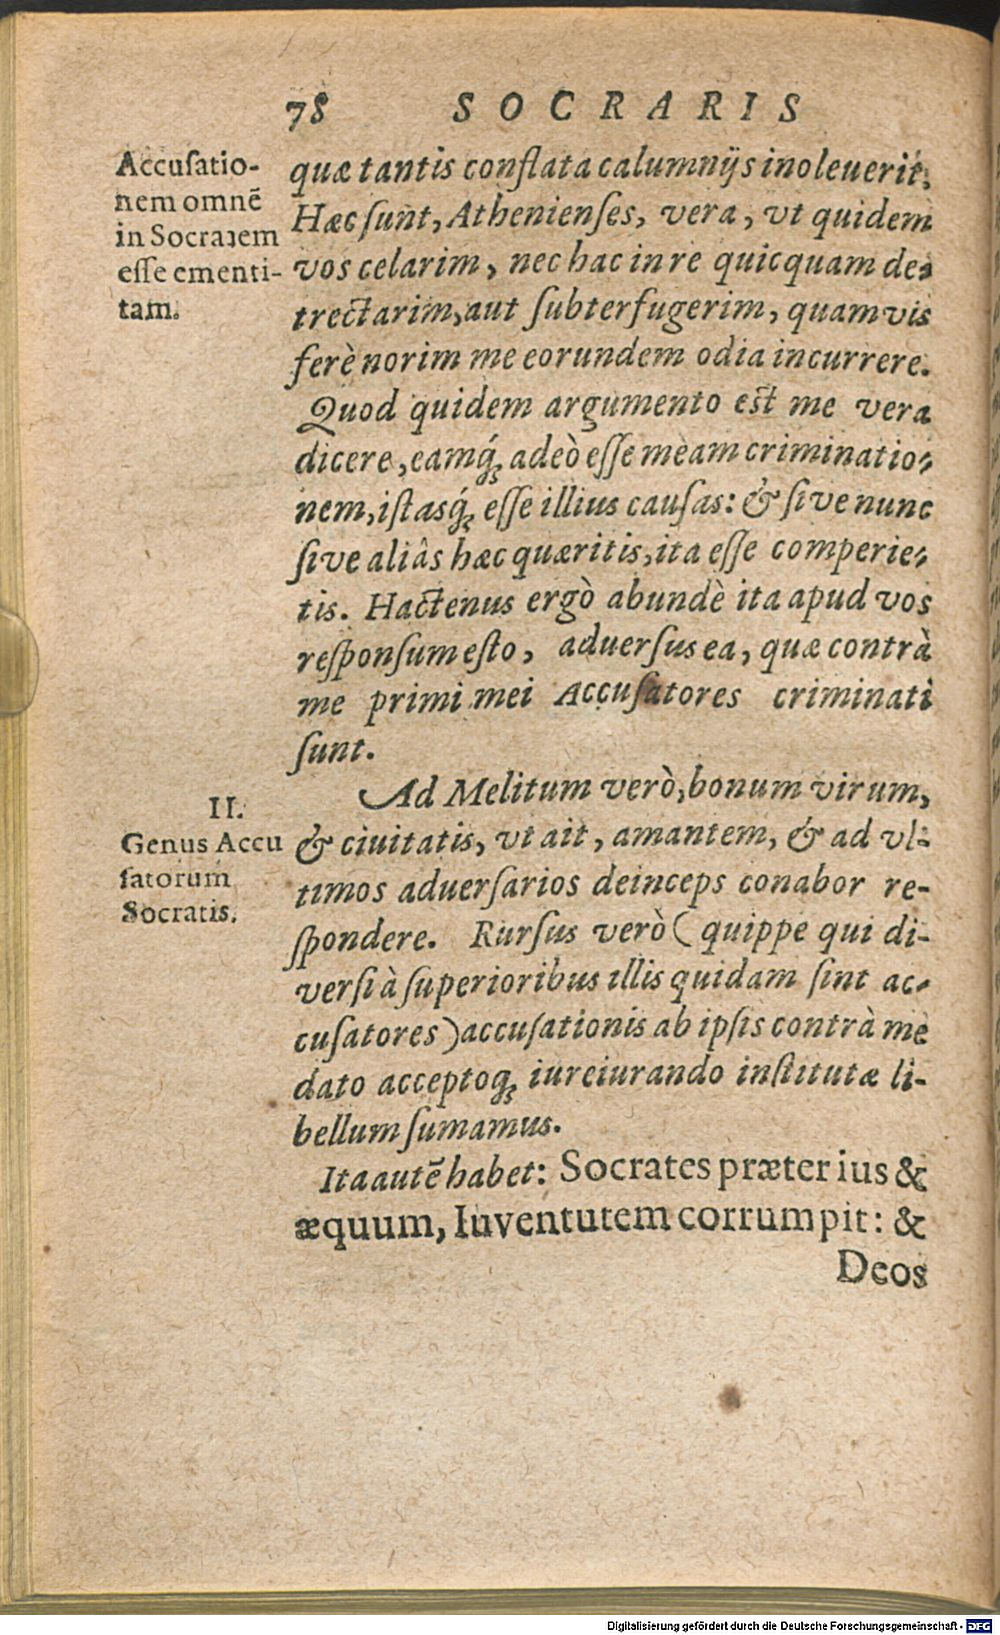 78 SOCRARIS
Accuſatio-
nem omnē
in Socratem
eſſe ementi-
tam.
quæ tantis conflata calumnijs inoleuerit.
Hæc ſunt, Athenienſes, vera, vt quidem
vos celarim, nec hac in re quicquam de-
trectarim, aut ſubterfugerim, quamvis
ferè norim me eorundem odia incurrere.
Quod quidem argumento est me vera
dicere, eamq́; adeò eſſe meam criminatio-
nem, iſtasq́; eſſe illius cauſas: & ſive nunc
ſive aliâs hæc quæritis, ita eſſe comperie-
tis. Hactenus ergò abundè ita apud vos
reſponſum eſto, aduerſus ea, quæ contrà
me primi mei Accuſatores criminati
ſunt.
II.
Genus Accu
ſatorum
Socratis.
Ad Melitum verò, bonum virum,
& ciuitatis, vt ait, amantem, & ad vl-
timos aduerſarios deinceps conabor re-
ſpondere. Rurſus verò (quippe qui di-
verſi à ſuperioribus illis quidam ſint ac-
cuſatores) accuſationis ab ipſis contrà me
dato acceptoq; iureiurando inſtitutæ li-
bellum ſumamus.
Ita autē habet: Socrates præter ius &
æquum, Iuventutem corrumpit: &
Deos
Digitalisierung gefördert durch die Deutsche Forschungsgemeinschaft - DFG